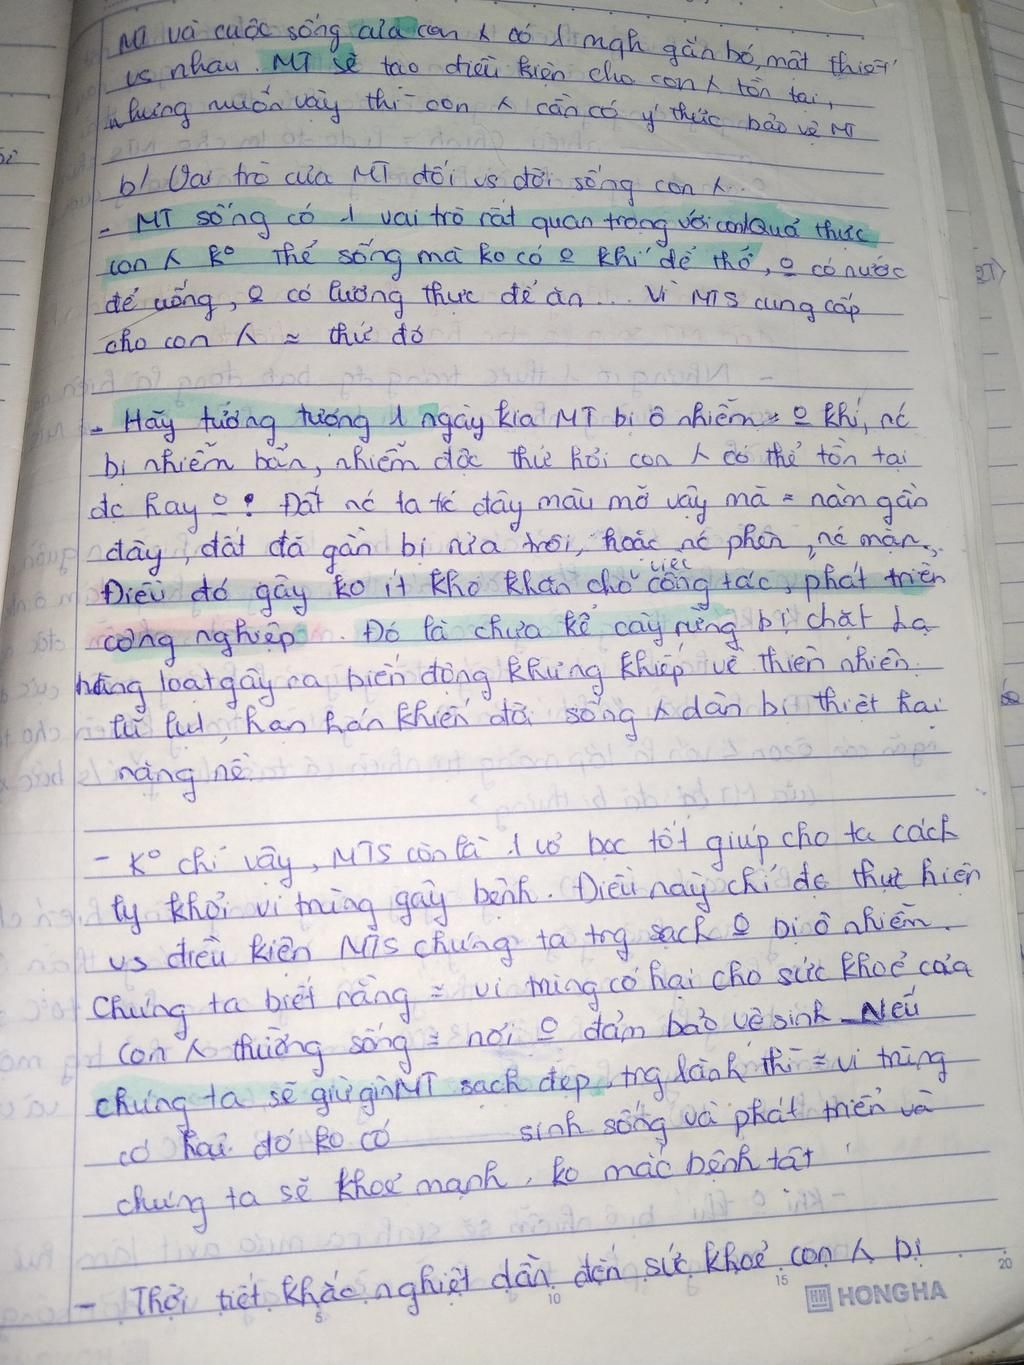 MT và cuộc sống của con λ có 1 mqh gắn bó, mật thiết
vs nhau. MT sẽ tạo điều kiện cho con λ tồn tại,
nhưng muốn vậy thì con λ cần có ý thức bảo vệ MT
b/ Vai trò của MT đối vs đời sống con λ.
- MT sống có 1 vai trò rất quan trọng với con λ Quả thực
con λ ko thể sống mà ko có o khí để thở, o có nước
để uống, o có lương thực để ăn... Vì MTS cung cấp
cho con λ ≈ thứ đó
- Hãy tưởng tượng 1 ngày kia MT bị ô nhiễm ≈ o khí, nc
bị nhiễm bẩn, nhiễm độc thử hỏi con λ có thể tồn tại
đc hay o? Đất nc ta từ đây màu mỡ vậy mà ≈ năm gần
đây, đất đã gần bị rửa trôi, hoặc nc phèn, nc mặn.
Điều đó gây ko ít khó khăn cho việc công tác, phát triển
công nghiệp. Đó là chưa kể cây rừng bị chặt hạ
hàng loạt gây ra biến động khủng khiếp về thiên nhiên
lũ lụt, hạn hán khiến đời sống λ dân bị thiệt hại
nặng nề.
- Ko chỉ vậy, MTS còn là 1 vỏ bọc tốt giúp cho ta cách
ly khỏi vi trùng gây bệnh. Điều này chỉ đc thực hiện
vs điều kiện MTS chúng ta trg sạch o bị ô nhiễm.
Chúng ta biết rằng ≈ vi trùng có hại cho sức khoẻ của
con λ thường sống ≈ nơi o đảm bảo vệ sinh. Nếu
chúng ta sẽ giữ gìn MT sạch đẹp, trg lành thì ≈ vi trùng
có hại đó ko có sinh sống và phát triển và
chúng ta sẽ khoẻ mạnh, ko mắc bệnh tật
- Thời tiết khắc nghiệt dẫn đến sức khoẻ con λ bị
5 10 15 20
HONG HA